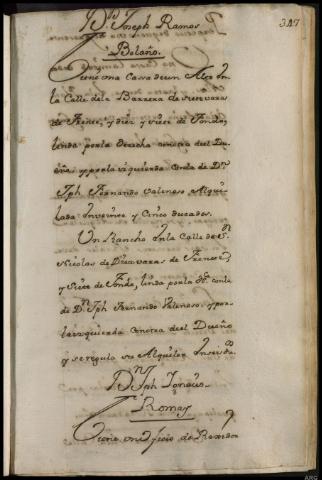 347
Dn. Joseph Ramos
Bolaño.
Tiene una Cassa de un Alto en
la Calle dela Barrera de siete varas
de Frente, y diez y siete de Fondo,
linda por la derecha con otra del Du
eño, y por la izquierda con la de Dn.
Jph. Fernando Valenoso Alqui
lada en veinte y Cinco ducados.
Un Rancho en la Calle de Sn.
Nicolas de varas de Frente,
y Siete de Fondo, linda por la con la
de Dn. Jph Fernando Valenoso, y por
la izquierda con otra del Dueño
y se regulo su Alquiler en seis ds.
Dn. Jph Ignacio
Ramos
Tiene un oficio de
ARG